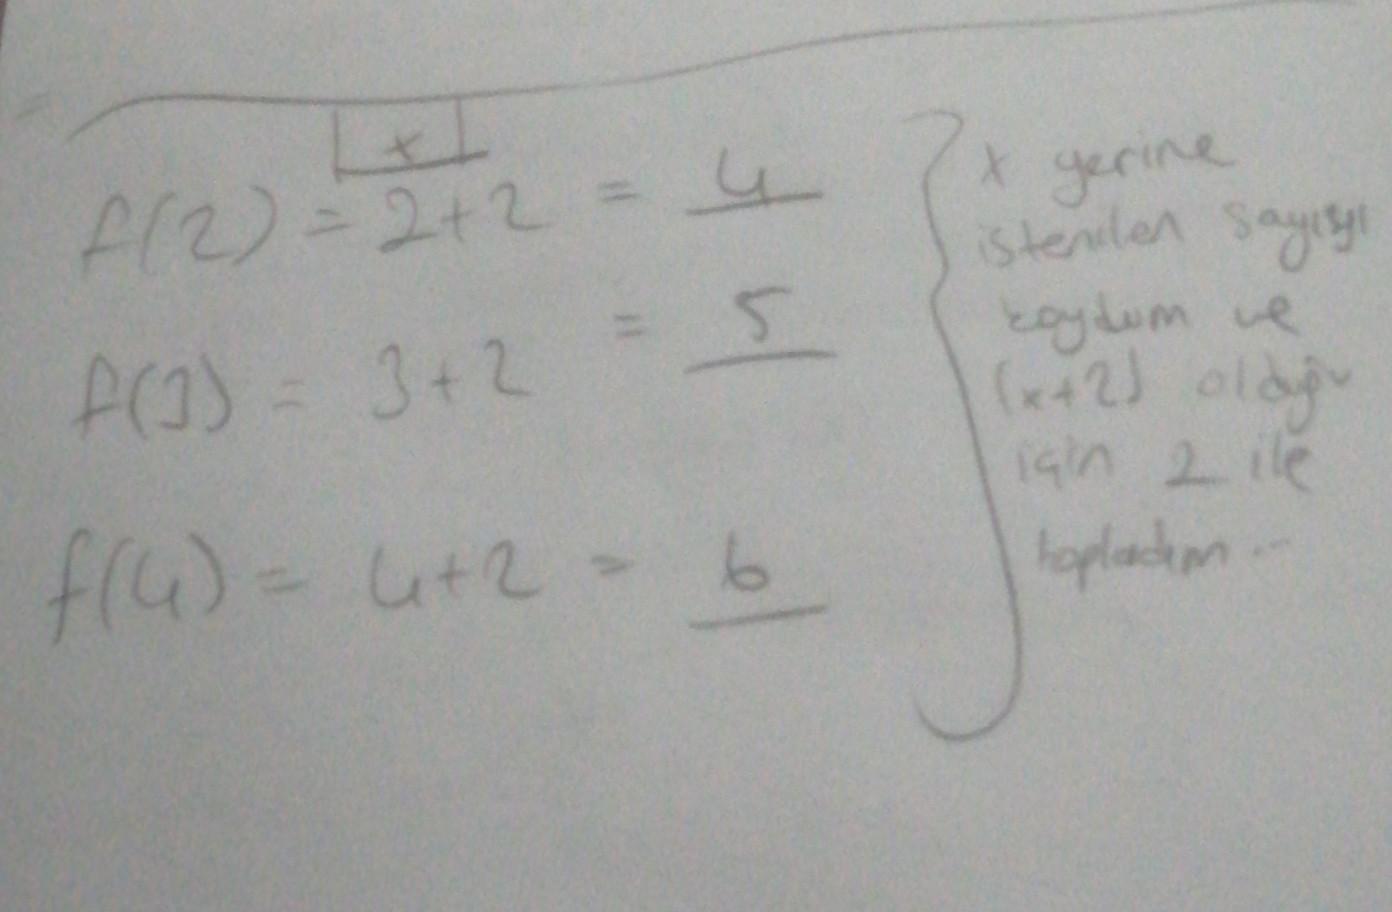 x
f(2) = 2+2 = 4
f(3) = 3+2 = 5
f(4) = 4+2 = 6
x yerine
istenilen sayısyı
koydum ve
(x+2) olduğu
için 2 ile
topladım...